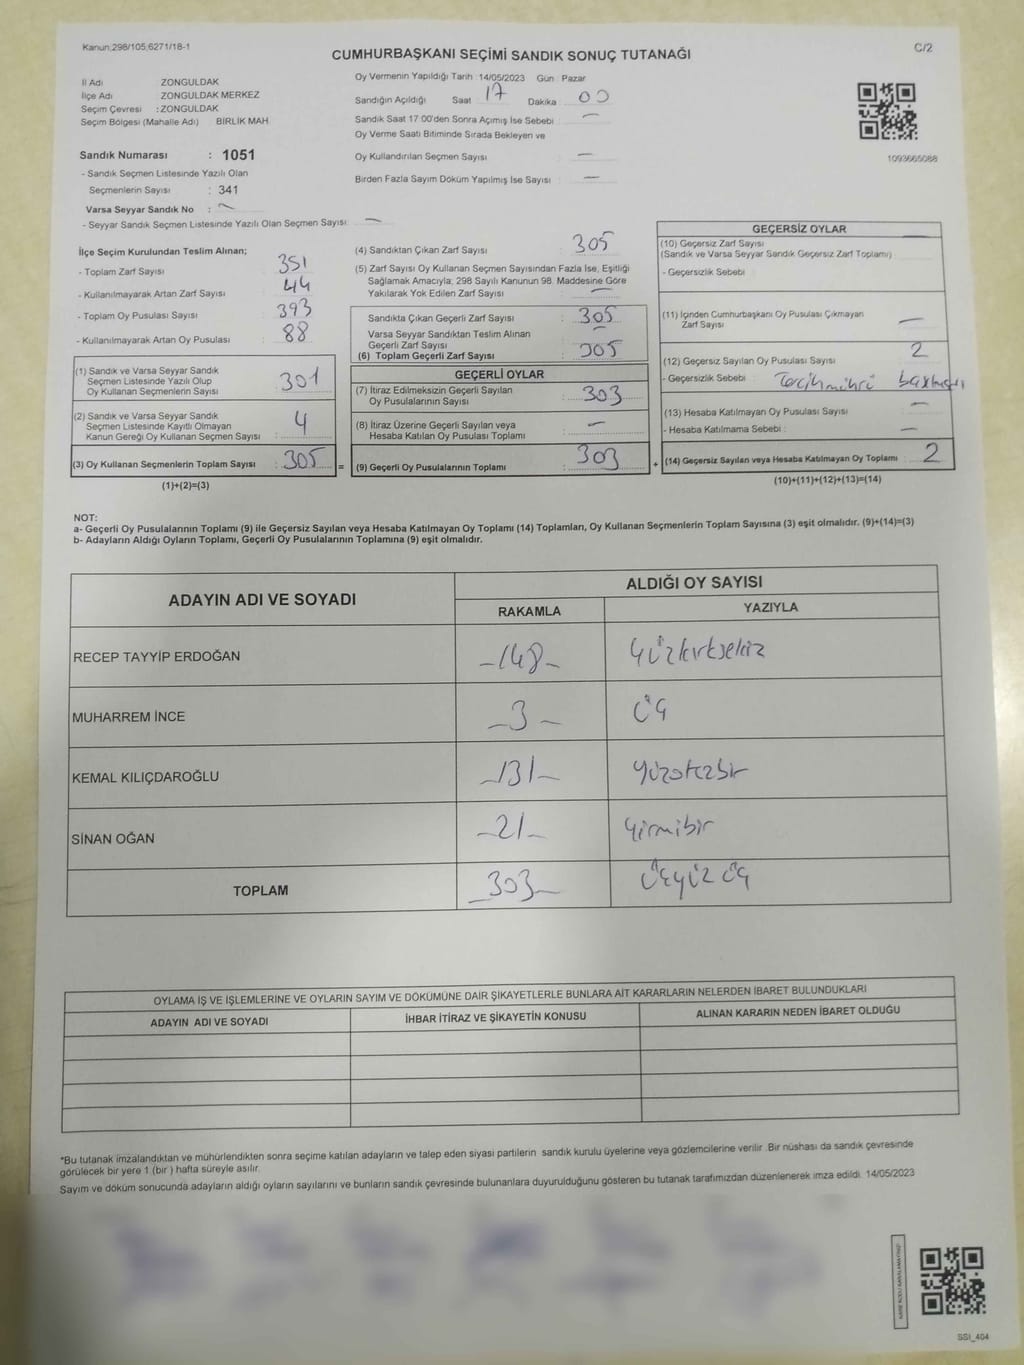 Kanun:298/105;6271/18-1
C/2
CUMHURBAŞKANI SEÇİMİ SANDIK SONUÇ TUTANAĞI
İl Adı ZONGULDAK
İlçe Adı ZONGULDAK MERKEZ
Seçim Çevresi : ZONGULDAK
Seçim Bölgesi (Mahalle Adı) BİRLİK MAH.
Oy Vermenin Yapıldığı Tarih : 14/05/2023 Gün : Pazar
Sandığın Açıldığı Saat 17 Dakika 00
Sandık Saat 17:00'den Sonra Açılmış İse Sebebi : —
Oy Verme Saati Bitiminde Sırada Bekleyen ve
Oy Kullandırılan Seçmen Sayısı : —
Birden Fazla Sayım Döküm Yapılmış İse Sayısı : —
1093665088
Sandık Numarası : 1051
- Sandık Seçmen Listesinde Yazılı Olan
Seçmenlerin Sayısı : 341
Varsa Seyyar Sandık No : —
- Seyyar Sandık Seçmen Listesinde Yazılı Olan Seçmen Sayısı: —
İlçe Seçim Kurulundan Teslim Alınan;
- Toplam Zarf Sayısı : 351
- Kullanılmayarak Artan Zarf Sayısı : 44
- Toplam Oy Pusulası Sayısı : 393
- Kullanılmayarak Artan Oy Pusulası : 88
(1) Sandık ve Varsa Seyyar Sandık
Seçmen Listesinde Yazılı Olup
Oy Kullanan Seçmenlerin Sayısı : 301
(2) Sandık ve Varsa Seyyar Sandık
Seçmen Listesinde Kayıtlı Olmayan
Kanun Gereği Oy Kullanan Seçmen Sayısı : 4
(3) Oy Kullanan Seçmenlerin Toplam Sayısı : 305 =
(1)+(2)=(3)
(4) Sandıktan Çıkan Zarf Sayısı : 305
(5) Zarf Sayısı Oy Kullanan Seçmen Sayısından Fazla İse, Eşitliği
Sağlamak Amacıyla, 298 Sayılı Kanunun 98. Maddesine Göre
Yakılarak Yok Edilen Zarf Sayısı : —
Sandıkta Çıkan Geçerli Zarf Sayısı : 305
Varsa Seyyar Sandıktan Teslim Alınan
Geçerli Zarf Sayısı : —
(6) Toplam Geçerli Zarf Sayısı : 305
GEÇERLİ OYLAR
(7) İtiraz Edilmeksizin Geçerli Sayılan
Oy Pusulalarının Sayısı : 303
(8) İtiraz Üzerine Geçerli Sayılan veya
Hesaba Katılan Oy Pusulası Toplamı : —
(9) Geçerli Oy Pusulalarının Toplamı : 303 +
GEÇERSİZ OYLAR
(10) Geçersiz Zarf Sayısı
(Sandık ve Varsa Seyyar Sandık Geçersiz Zarf Toplamı) :
- Geçersizlik Sebebi :
(11) İçinden Cumhurbaşkanı Oy Pusulası Çıkmayan
Zarf Sayısı : —
(12) Geçersiz Sayılan Oy Pusulası Sayısı : 2
- Geçersizlik Sebebi : Tercih mührü
(13) Hesaba Katılmayan Oy Pusulası Sayısı : —
- Hesaba Katılmama Sebebi : —
(14) Geçersiz Sayılan veya Hesaba Katılmayan Oy Toplamı : 2
(10)+(11)+(12)+(13)=(14)
NOT:
a- Geçerli Oy Pusulalarının Toplamı (9) ile Geçersiz Sayılan veya Hesaba Katılmayan Oy Toplamı (14) Toplamları, Oy Kullanan Seçmenlerin Toplam Sayısına (3) eşit olmalıdır. (9)+(14)=(3)
b- Adayların Aldığı Oyların Toplamı, Geçerli Oy Pusulalarının Toplamına (9) eşit olmalıdır.
ADAYIN ADI VE SOYADI
ALDIĞI OY SAYISI
RAKAMLA YAZIYLA
RECEP TAYYİP ERDOĞAN –148– yüzkırksekiz
MUHARREM İNCE –3– üç
KEMAL KILIÇDAROĞLU –131– yüzotuzbir
SİNAN OĞAN –21– yirmibir
TOPLAM –303– üçyüz üç
OYLAMA İŞ VE İŞLEMLERİNE VE OYLARIN SAYIM VE DÖKÜMÜNE DAİR ŞİKAYETLERLE BUNLARA AİT KARARLARIN NELERDEN İBARET BULUNDUKLARI
ADAYIN ADI VE SOYADI İHBAR İTİRAZ VE ŞİKAYETİN KONUSU ALINAN KARARIN NEDEN İBARET OLDUĞU
*Bu tutanak imzalandıktan ve mühürlendikten sonra seçime katılan adayların ve talep eden siyasi partilerin sandık kurulu üyelerine veya gözlemcilerine verilir. Bir nüshası da sandık çevresinde
görülecek bir yere 1 (bir ) hafta süreyle asılır.
Sayım ve döküm sonucunda adayların aldığı oyların sayılarını ve bunların sandık çevresinde bulunanlara duyurulduğunu gösteren bu tutanak tarafımızdan düzenlenerek imza edildi. 14/05/2023
SSI_404